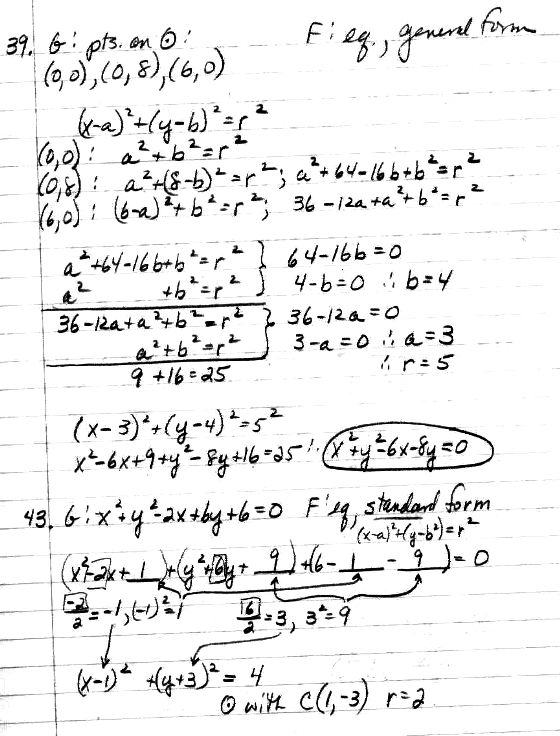 39. G: pts. on ⊙: F: eq., general form
(0,0), (0,8), (6,0)
(x-a)²+(y-b)²=r²
(0,0): a²+b²=r²
(0,8): a²+(8-b)²=r²; a²+64-16b+b²=r²
(6,0): (6-a)²+b²=r²; 36-12a+a²+b²=r²
a²+64-16b+b²=r² } 64-16b=0
a² +b²=r² } 4-b=0 ∴ b=4
36-12a+a²+b²=r² } 36-12a=0
a²+b²=r² } 3-a=0 ∴ a=3
9+16=25 ∴ r=5
(x-3)²+(y-4)²=5²
x²-6x+9+y²-8y+16=25 ∴ x²+y²-6x-8y=0
43. G: x²+y²-2x+6y+6=0 F: eq, standard form
(x-a)²+(y-b²)=r²
(x²-2x+1)+(y²+6y+9)+(6-1-9)=0
-2/2=-1, (-1)²=1 6/2=3, 3²=9
(x-1)² +(y+3)²=4
⊙ with C(1,-3) r=2